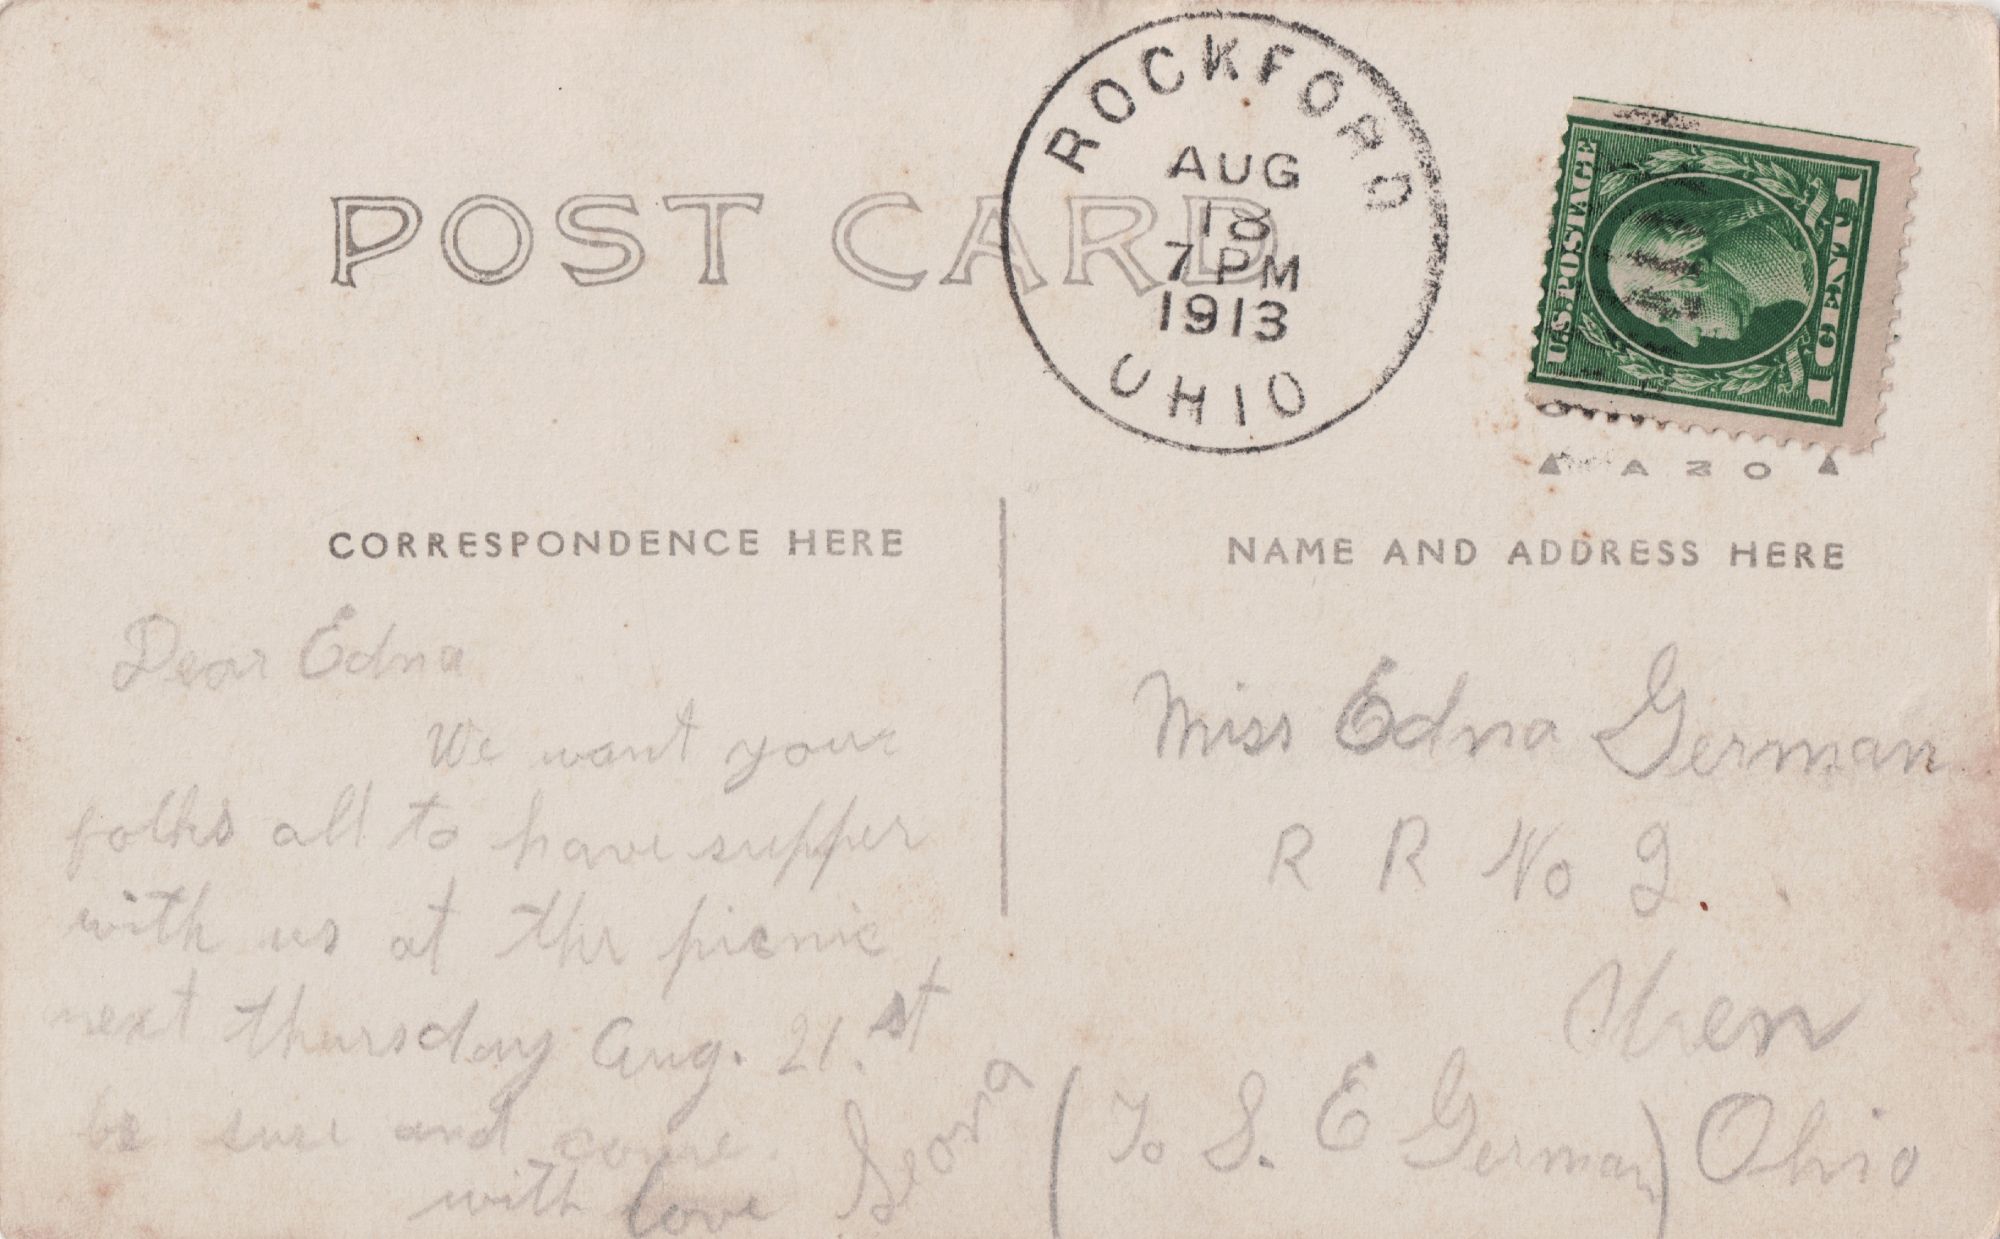 POST CARD
ROCKFORD
AUG
18
7 PM
1913
OHIO
U.S. POSTAGE
1 CENT 1
AZO
CORRESPONDENCE HERE
NAME AND ADDRESS HERE
Dear Edna
We want your
folks all to have supper
with us at the picnic
next thursday Aug. 21.st
be sure and come.
with love Leona
Miss Edna German
R R No 2.
Uren
(To S. E German) Ohio